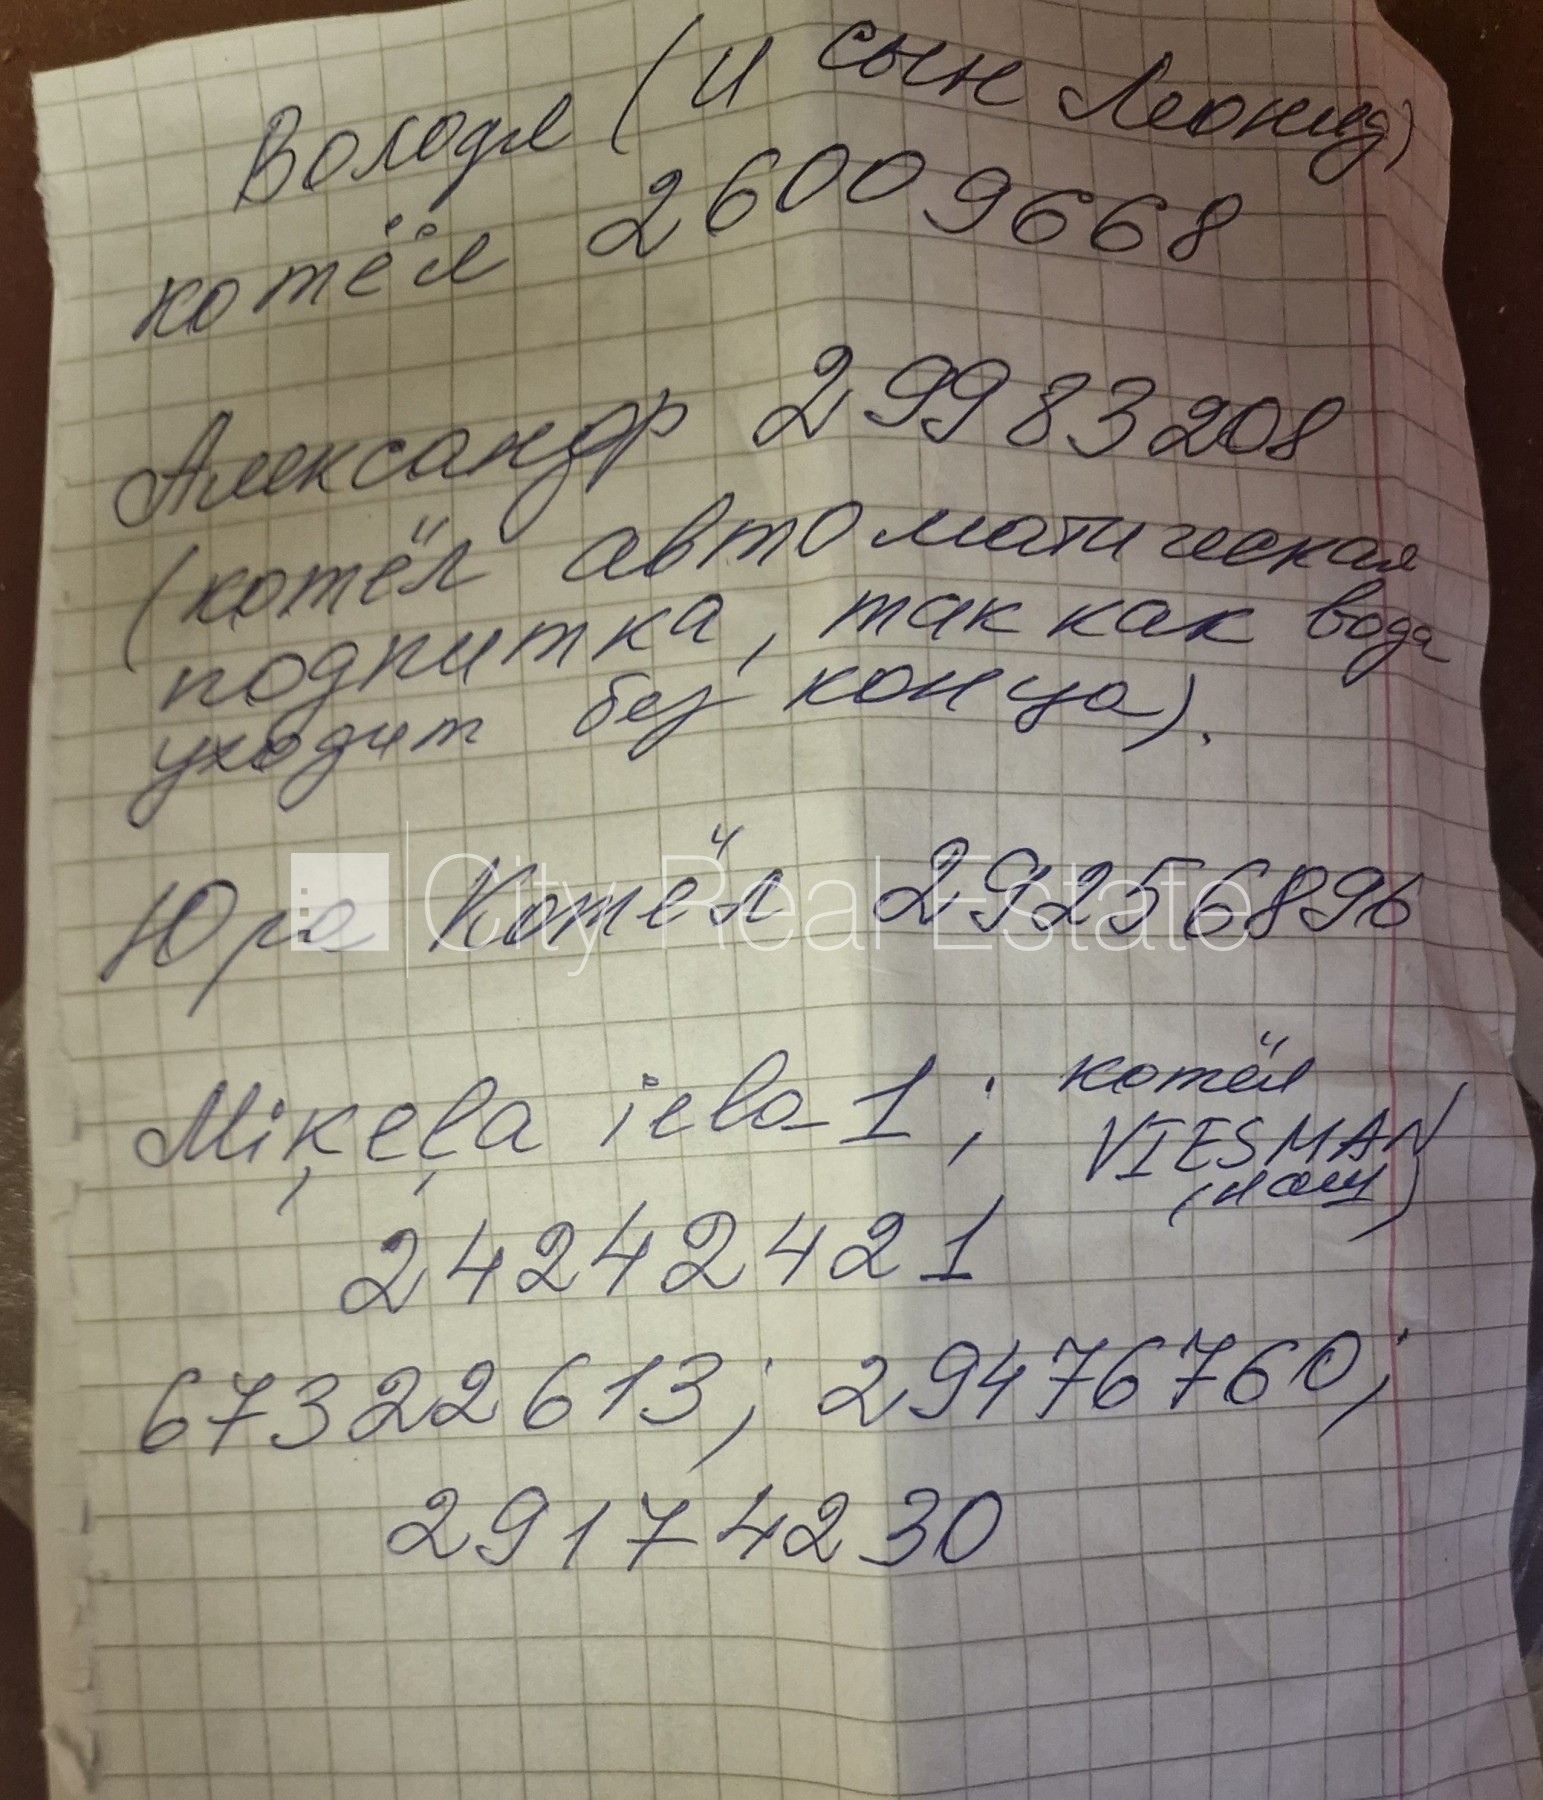 Володя (и сын Леонид)
котёл 26009668
Александр 29983208
(котёл автоматическая
подпитка, так как вода
уходит без конца).
Юра Котёл 29256896
City Real Estate
Miķeļa iela 1; котёл
VIESMAN
(наш)
24242421
67322613; 29476760;
29174230